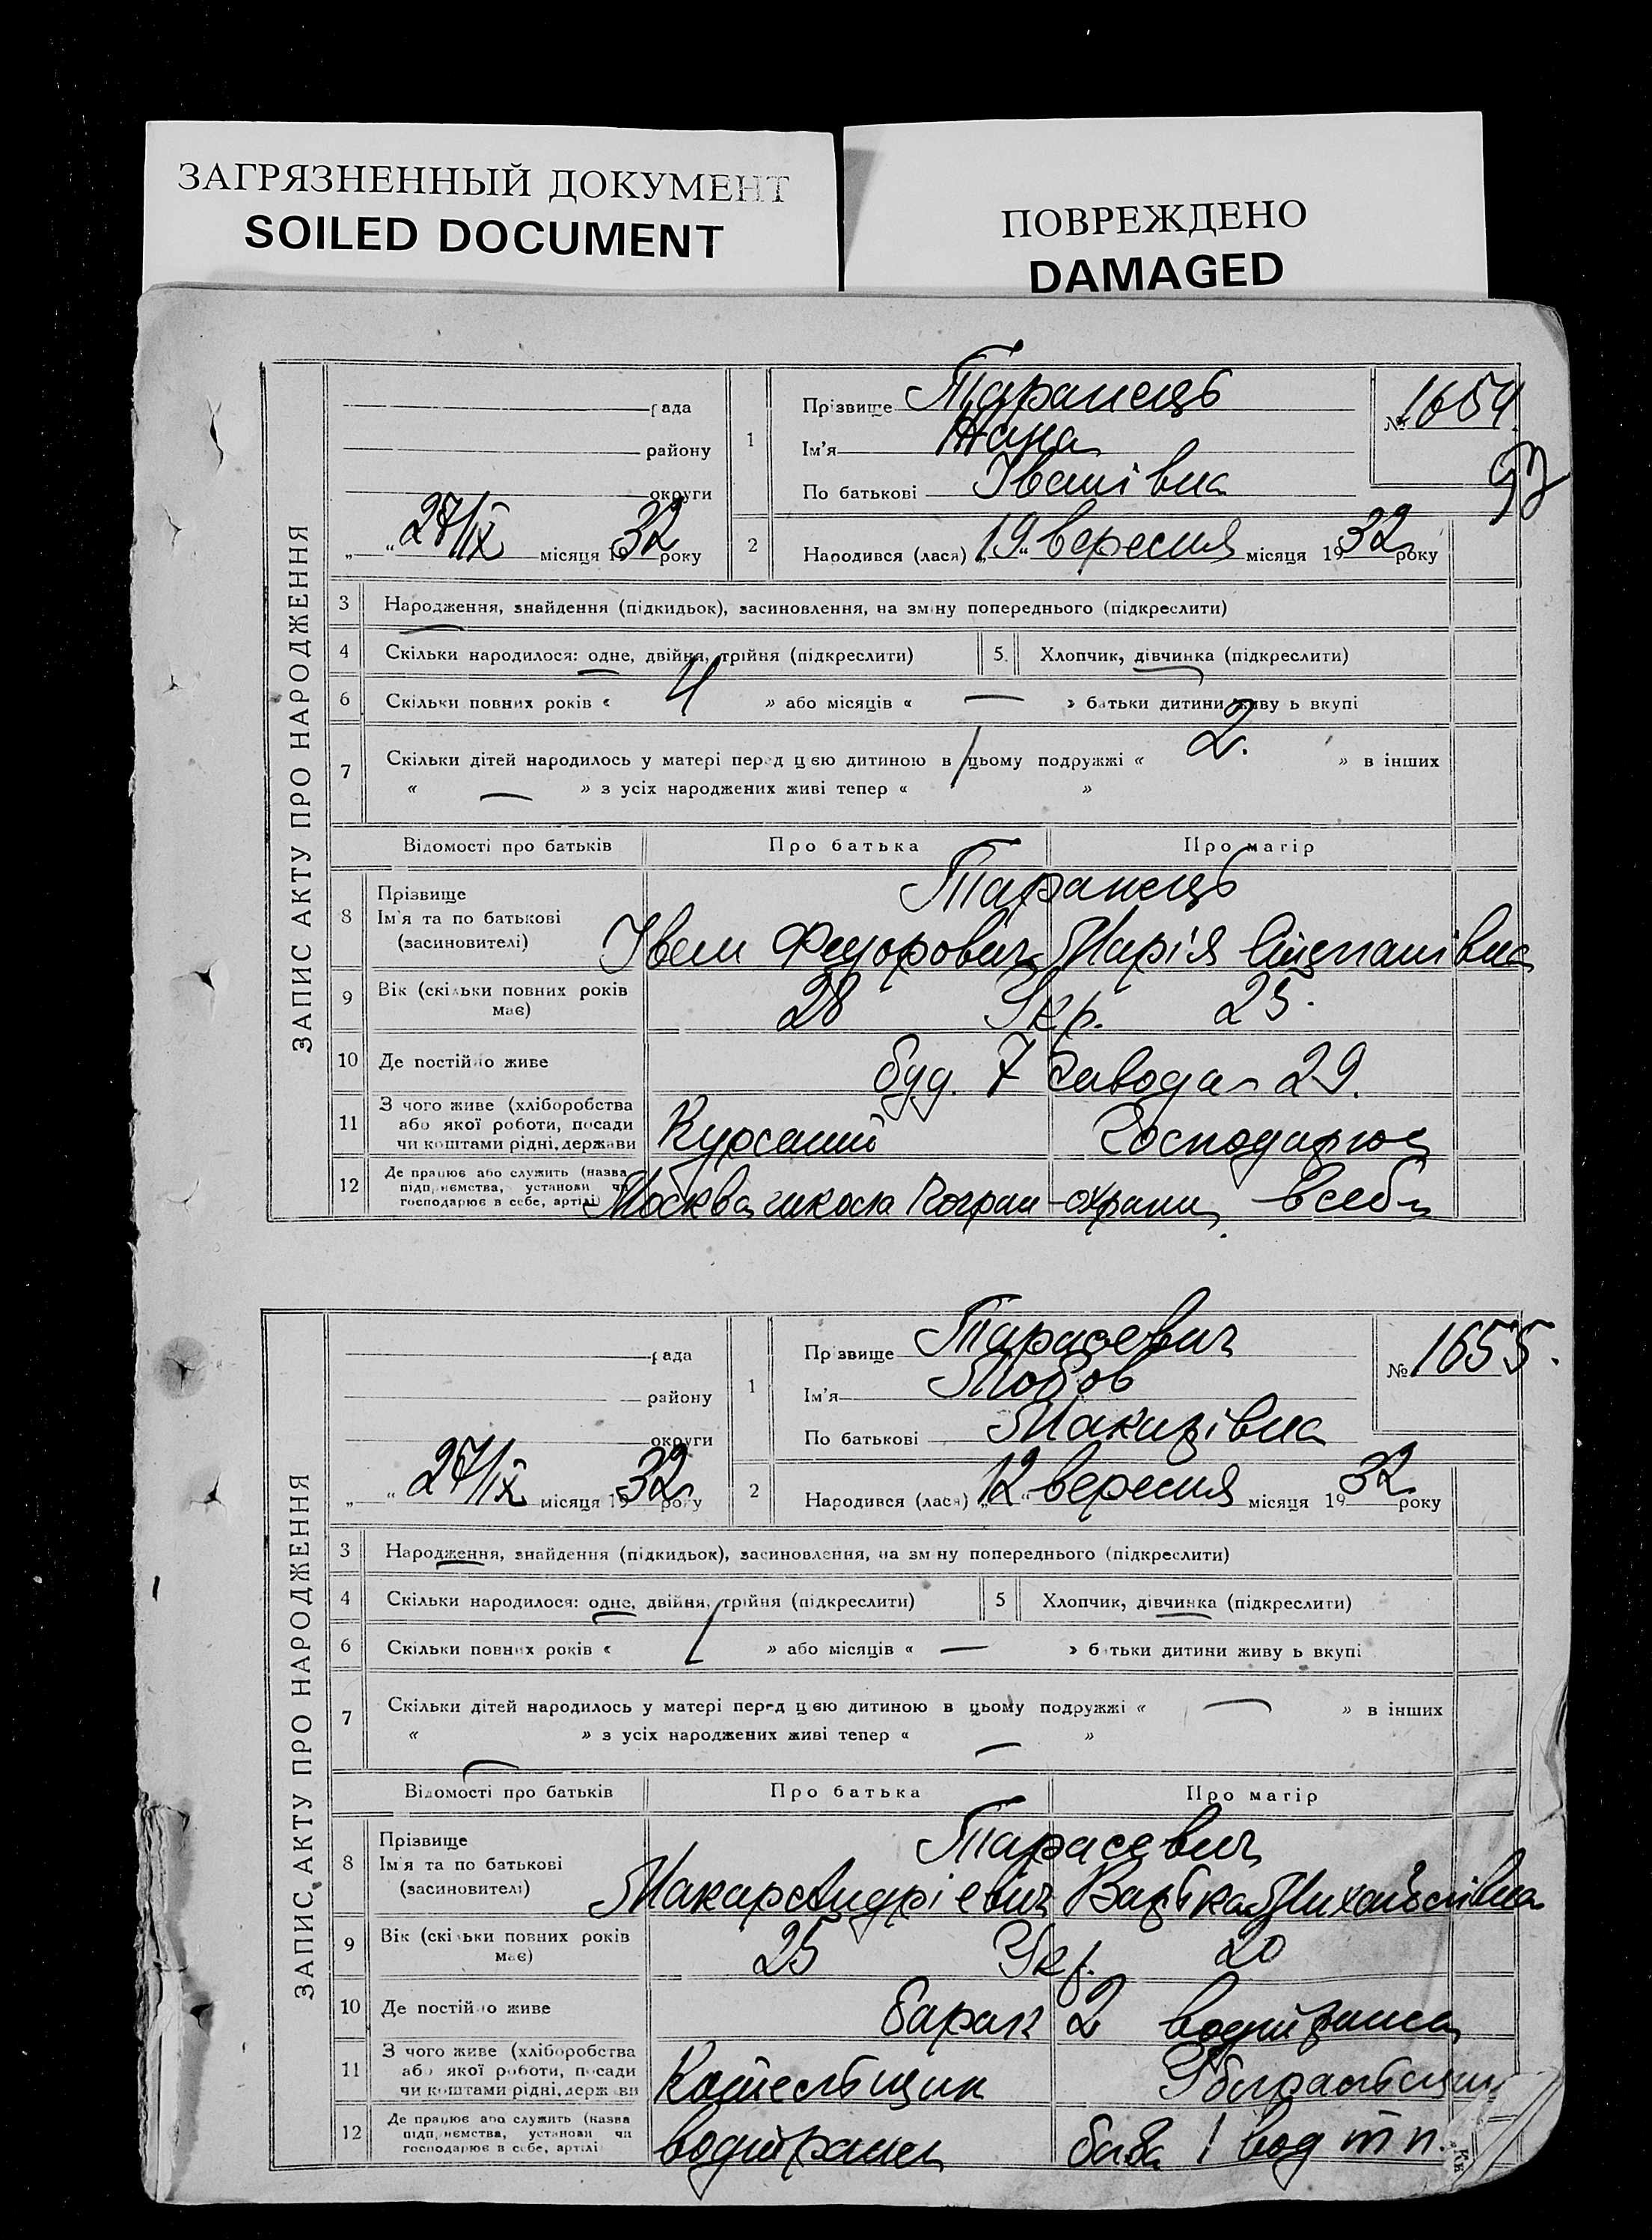 ЗАГРЯЗНЕННЫЙ ДОКУМЕНТ
SOILED DOCUMENT
ПОВРЕЖДЕНО
DAMAGED
ЗАПИС АКТУ ПРО НАРОДЖЕННЯ
рада
району
округи
„ “ 27/IX місяця 1932 року
1
Прізвище Таранець
Ім'я Жана
По батькові Іванівна
№ 1654
93
2
Народився (лася) „19“ вересня місяця 1932 року
3 Народження, знайдення (підкидьок), засиновлення, на зміну попереднього (підкреслити)
4 Скільки народилося: одне, двійня, трійня (підкреслити)
5. Хлопчик, дівчинка (підкреслити)
6 Скільки повних років « 4 » або місяців « — » батьки дитини живуть вкупі
7 Скільки дітей народилось у матері перед цією дитиною в цьому подружжі « 2. » в інших
« — » з усіх народжених живі тепер « 1 »
Відомості про батьків Про батька Про матір
8 Прізвище Таранець
Ім'я та по батькові
(засиновителі) Іван Федорович Марія Степанівна
9 Вік (скільки повних років має) 28 Укр. 25.
10 Де постійно живе буд. 7 Завода 29.
11 З чого живе (хліборобства
або якої роботи, посади
чи коштами рідні, держави Курсант Господарює
12 Де працює або служить (назва
підприємства, установи чи
господарює в себе, артілі) Москва школа погран-охрани, в себе
ЗАПИС АКТУ ПРО НАРОДЖЕННЯ
рада
району
округи
„ “ 27/IX місяця 1932 року
1
Прізвище Тарасевич
Ім'я Любов
По батькові Макарівна
№ 1655.
2
Народився (лася) „12“ вересня місяця 1932 року
3 Народження, знайдення (підкидьок), засиновлення, на зміну попереднього (підкреслити)
4 Скільки народилося: одне, двійня, трійня (підкреслити)
5 Хлопчик, дівчинка (підкреслити)
6 Скільки повних років « 1 » або місяців « — » батьки дитини живуть вкупі
7 Скільки дітей народилось у матері перед цією дитиною в цьому подружжі « — » в інших
« — » з усіх народжених живі тепер « — »
Відомості про батьків Про батька Про матір
8 Прізвище Тарасевич
Ім'я та по батькові
(засиновителі) Макар Андрієвич Варька Михайлівна
9 Вік (скільки повних років має) 25 Укр. 20
10 Де постійно живе барак 2 водтранса
11 З чого живе (хліборобства
або якої роботи, посади
чи коштами рідні, держави Котельщик
12 Де працює або служить (назва
підприємства, установи чи
господарює в себе, артілі водтранс база 1 вод т п.